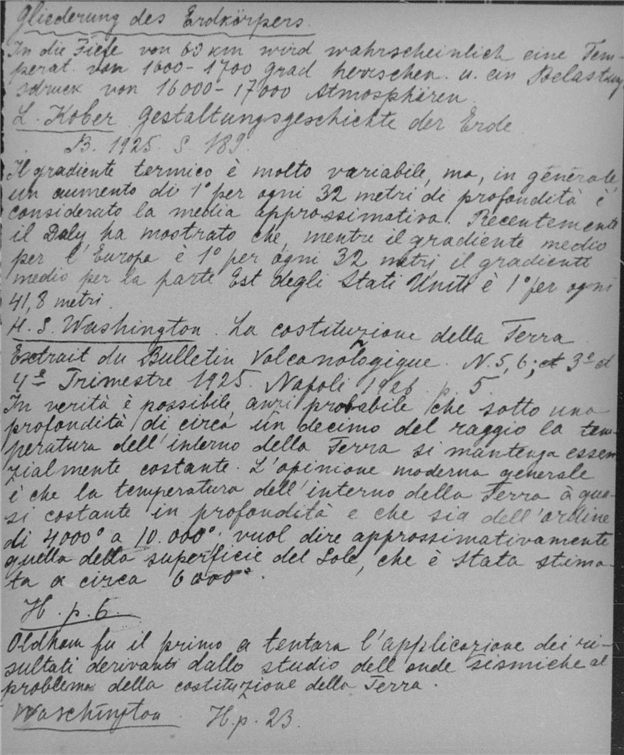 Gliederung des Erdkörpers.
In die Tiefe von 60 km wird wahrscheinlich eine Tem-
perat. von 1600-1700 grad herrschen. u. ein Belastungs
druck von 16000-17000 Atmosphären.
L. Kober Gestaltungsgeschichte der Erde
B. 1925. S 189.
Il gradiente termico è molto variabile, ma, in generale
un aumento di 1° per ogni 32 metri di profondità è
considerato la media approssimativa. Recentemente
il Daly ha mostrato che, mentre il gradiente medio
per l'Europa è 1° per ogni 32 metri il gradiente
medio per la parte Est degli Stati Uniti è 1° per ogni
41,8 metri.
H. S. Washington. La costituzione della Terra.
Extrait du Bulletin Volcanologique. N. 5, 6; et 3e et
4e Trimestre 1925. Napoli 1926 p. 5
In verità è possibile, anzi probabile che sotto una
profondità di circa un decimo del raggio la tem-
peratura dell'interno della Terra si mantenga essen
zialmente costante. L'opinione moderna generale
è che la temperatura dell'interno della Terra è qua-
si costante in profondità e che sia dell'ordine
di 4000° a 10.000° vuol dire approssimativamente
quella della superficie del Sole, che è stata stima-
ta a circa 6000°.
H. p. 6.
Oldham fu il primo a tentara l'applicazione dei ri-
sultati derivanti dallo studio dell'onde seismiche al
problema della costituzione della Terra.
Waschington. H. p. 23.